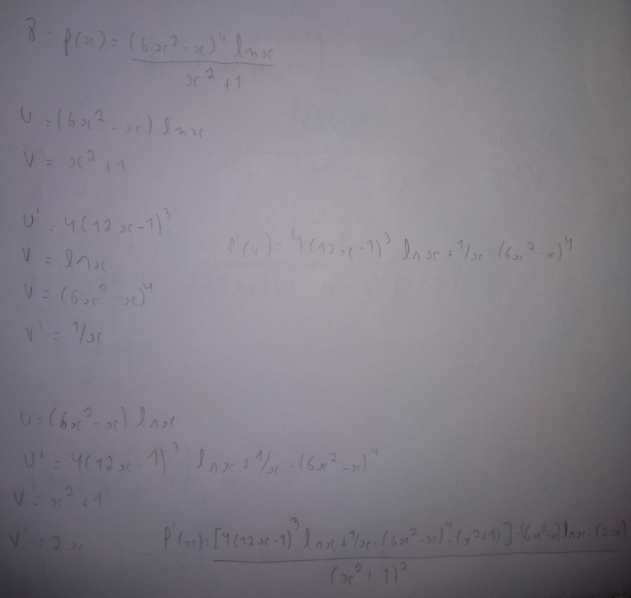 8- f(x) = (6x² - x)⁴ ln x
x² + 1
U = (6x² - x) ln x
V = x² + 1
U' = 4(12x - 1)³
V = ln x
f'(u) = 4(12x - 1)³ ln x + 1/x · (6x² - x)⁴
U = (6x² - x)⁴
V' = 1/x
U = (6x² - x) ln x
U' = 4(12x - 1)³ · ln x + 1/x · (6x² - x)⁴
V = x² + 1
V' = 2x
f'(x) = [4(12x - 1)³ ln x + 1/x · (6x² - x)⁴ · (x² + 1)] - (6x² - x) ln x · (2x)
(x² + 1)²